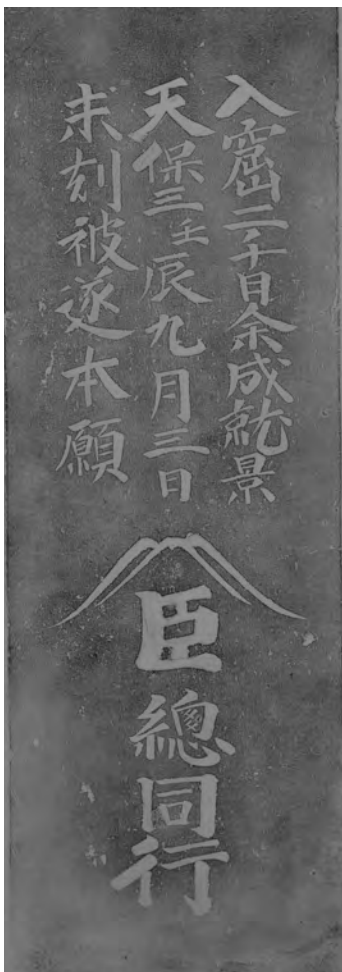 入窟二千日余成就景
天保三壬辰九月三日
未刻被遂本願
臣總同行